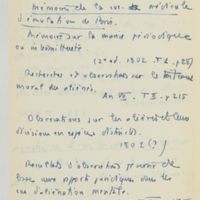 Mémoires de la soc. médicale
d'émulation de Paris.
Mémoire sur la manie périodique
ou intermittente
Recherches et observations sur le traitement
moral des aliénés.
An VII, T. II. p. 215
Observations sur les aliénés et leur
division en espèces distinctes.
1802 (?)
Résultats d'observations pour
base aux rapports juridiques dans les
cas d'aliénation mentale.